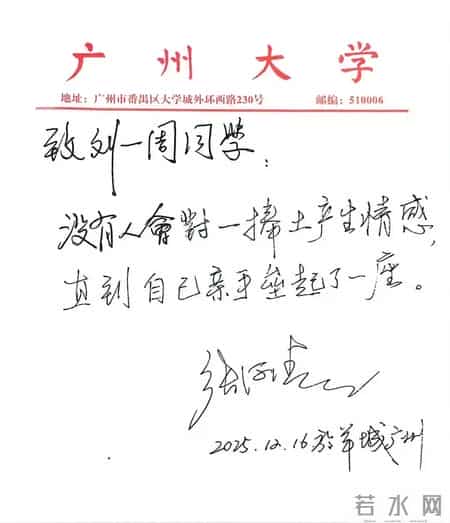 广州大学
地址：广州市番禺区大学城外环西路230号 邮编：510006
致刘一周同学：
没有人會對一捧土产生情感，
直到自己亲手垒起了一座。
2025.12.16於羊城广州
若水网